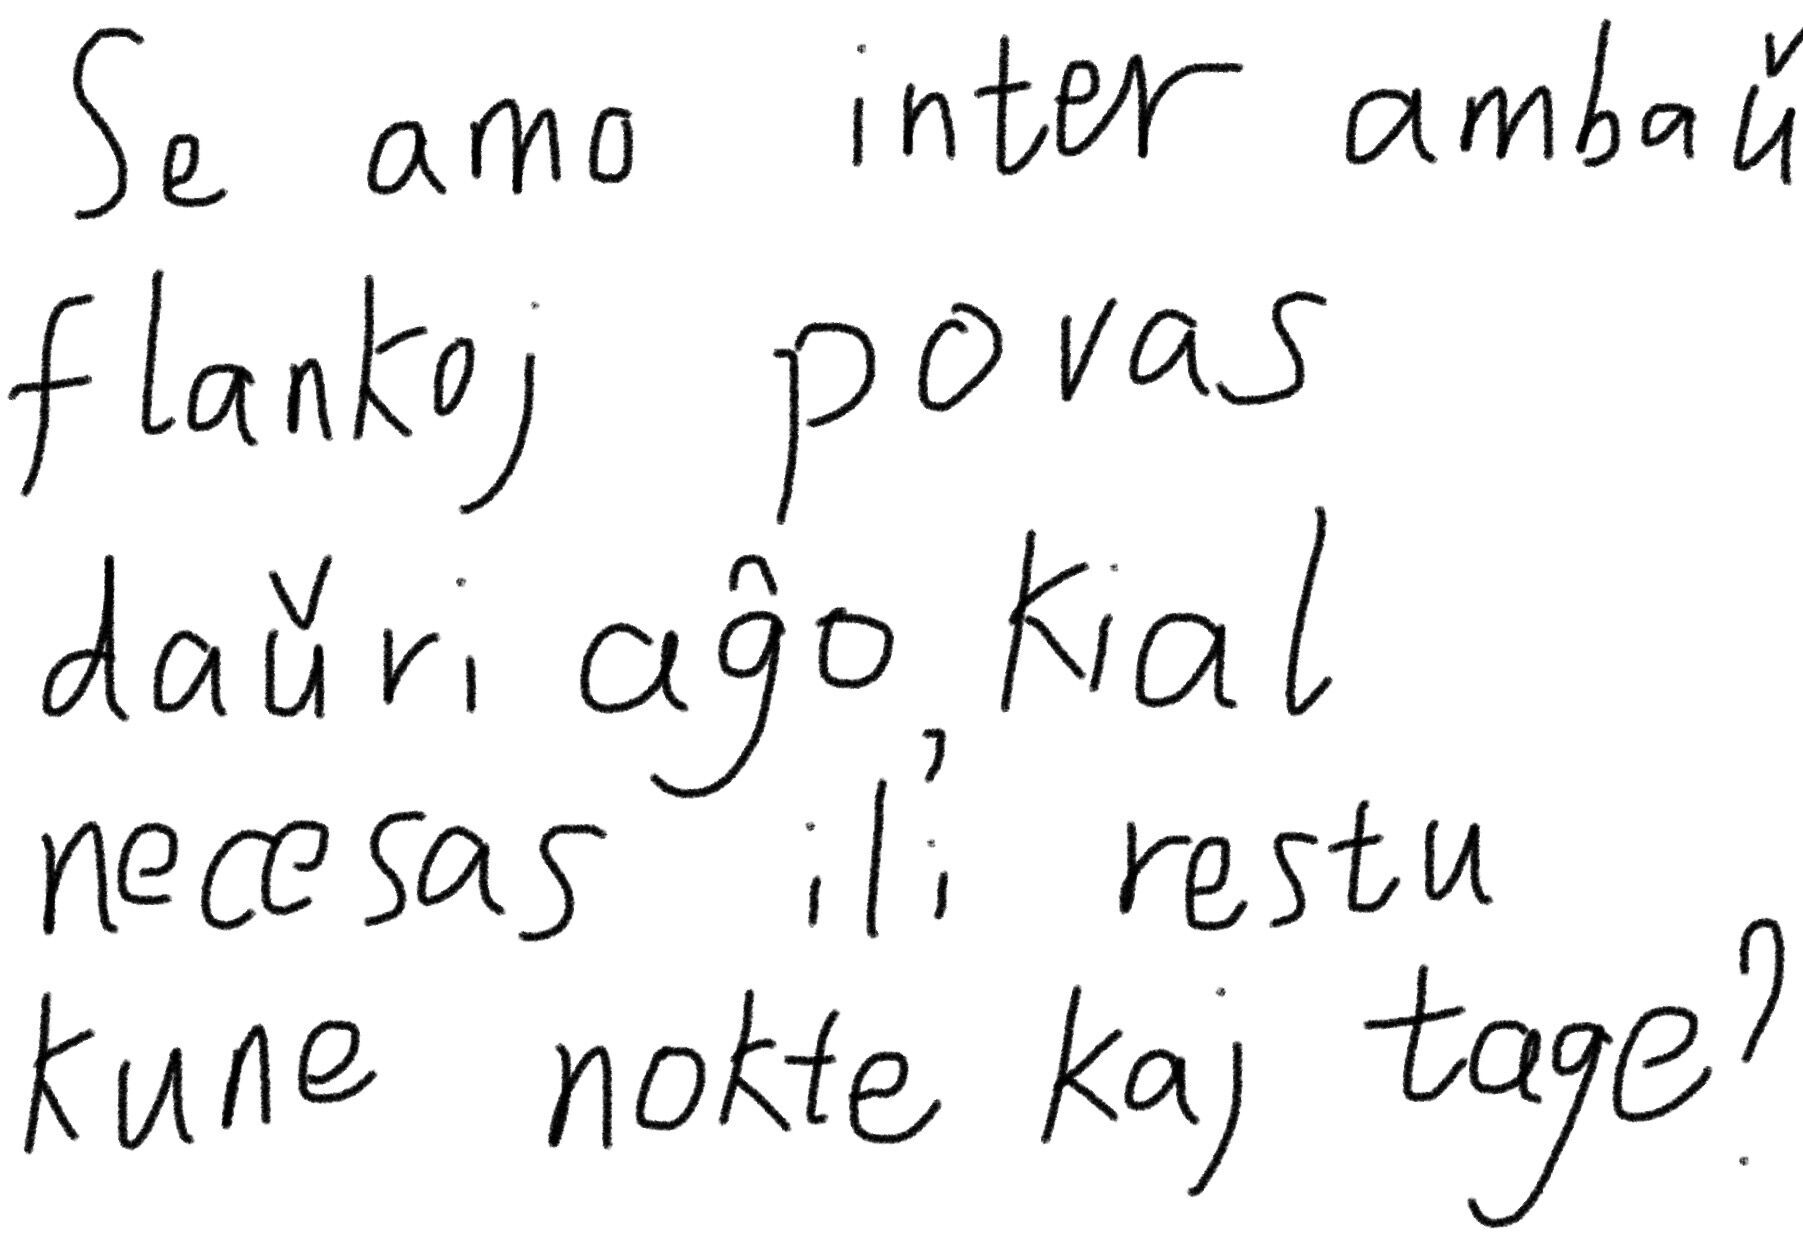 Se amo inter ambaŭ
flankoj povas
daŭri aĝo, kial
necesas ili restu
kune nokte kaj tage?